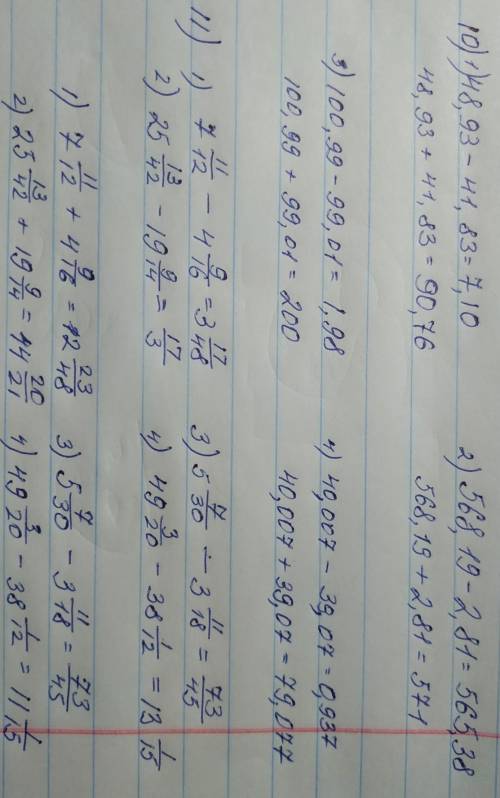 10) 1) 48,93 - 41,83 = 7,10
48,93 + 41,83 = 90,76
2) 568,19 - 2,81 = 565,38
568,19 + 2,81 = 571
3) 100,99 - 99,01 = 1,98
100,99 + 99,01 = 200
4) 40,007 - 39,07 = 0,937
40,007 + 39,07 = 79,077
11) 1) 7 11/12 - 4 9/16 = 3 17/48
2) 25 13/42 - 19 9/14 = 17/3
3) 5 7/30 - 3 11/18 = 73/45
4) 49 3/20 - 38 1/12 = 13 1/15
1) 7 11/12 + 4 9/16 = 12 23/48
2) 25 13/42 + 19 9/14 = 44 20/21
3) 5 7/30 - 3 11/18 = 73/45
4) 49 3/20 - 38 1/12 = 11 1/15